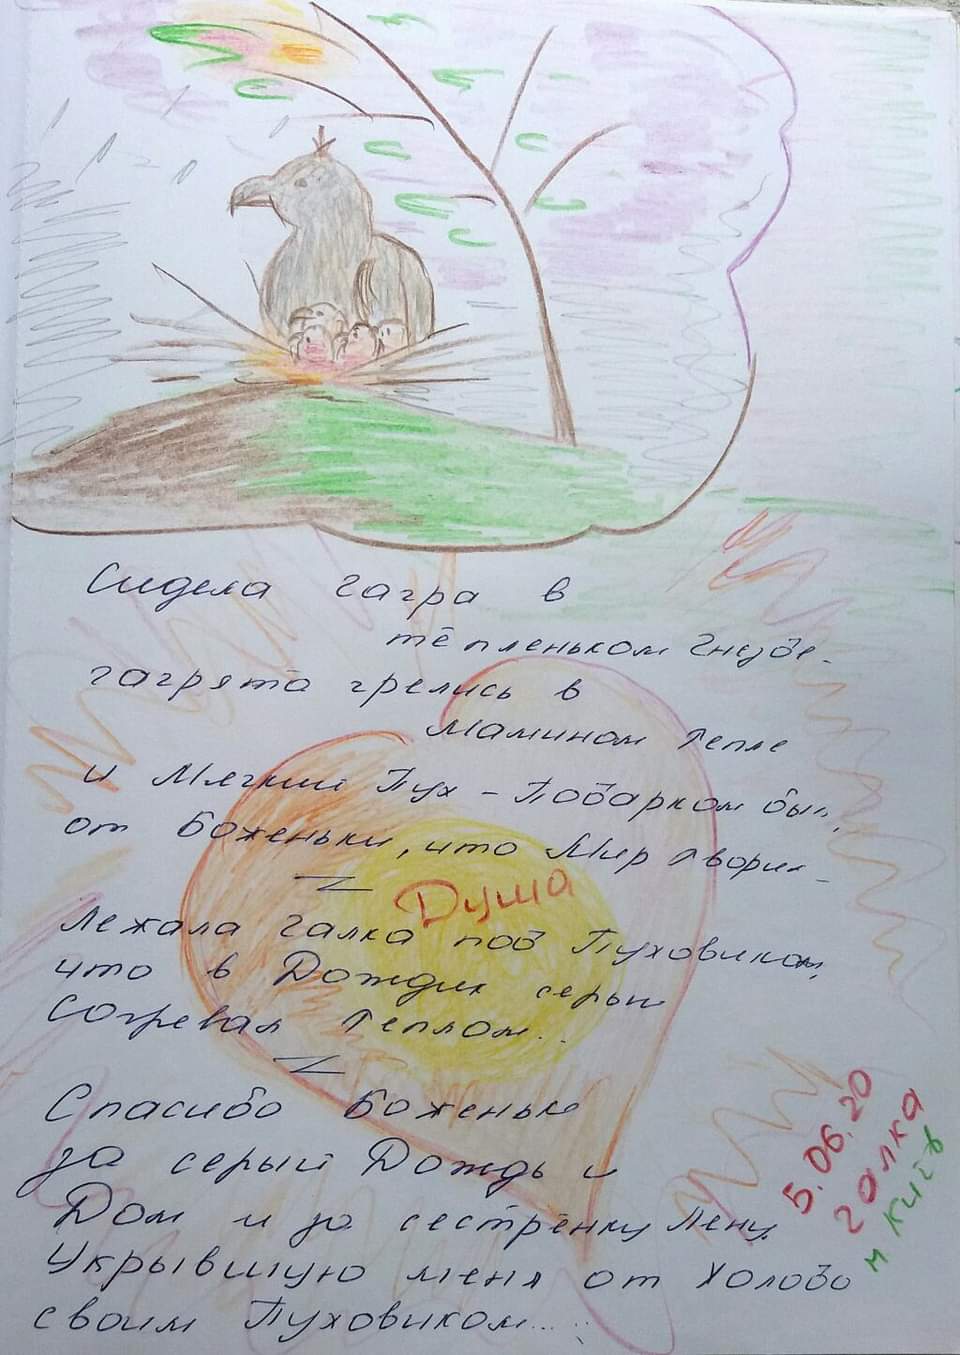 Сидела гагра в
тёпленьком гнезде.
гагрята грелись в
мамином тепле
и Мягкий Пух - Подарком был,
от Боженьки, что Мир творил
Душа
Лежала галка под Пуховиком,
что в Дождик серый
Согревал теплом..
Спасибо Боженьке
за серый Дождь и
Дом и за сестрёнку Лену,
Укрывшую меня от Холода
своим Пуховиком...
5.06.20
галка
м Київ